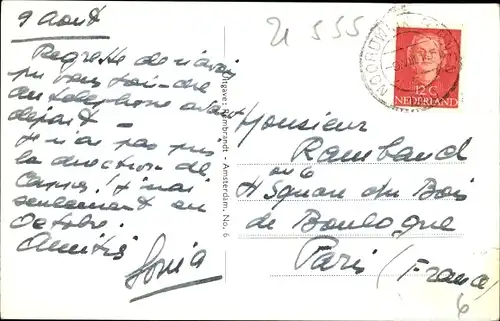 9 Août
Regrette de n'avoir
pu vous joindre
au téléphone avant
départ -
Je n'ai pas pris
la direction de
Cannes! J'irai
seulement en
Octobre.
Amitiés
Sonia
Uitgave: Rembrandt - Amsterdam. No. 6
21 555
NOORDWIJK
12 C
NEDERLAND
Monsieur
Rambaud
6
4 Square du Bois
de Boulogne
Paris (France)
6